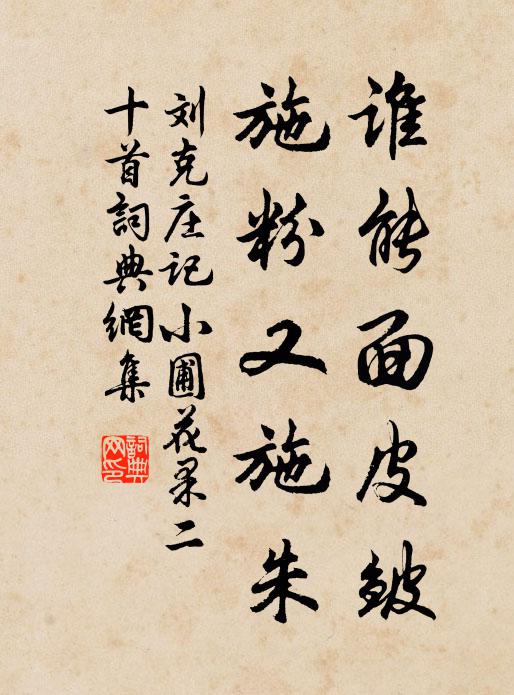 谁能面皮皱
施粉又施朱
刘克庄记小圃花果二
十首詞典網集
詞典网印